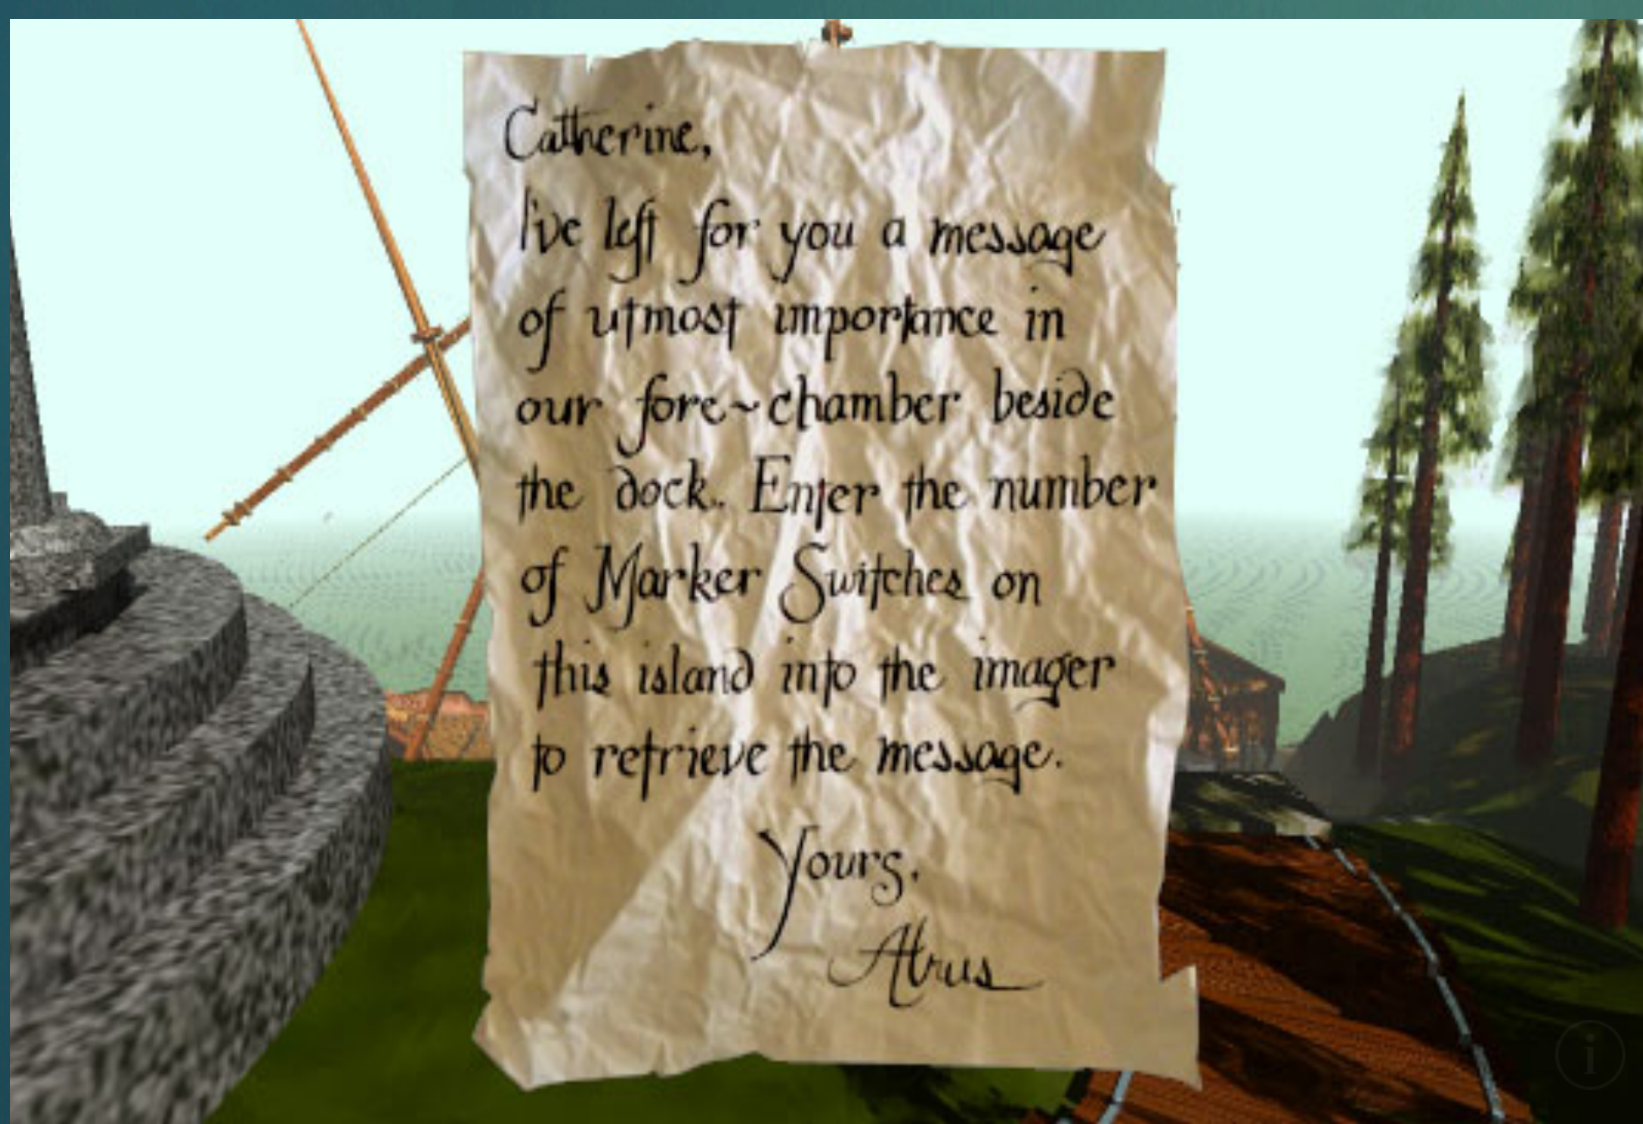 Catherine,
I've left for you a message
of utmost importance in
our fore~chamber beside
the dock. Enter the number
of Marker Switches on
this island into the imager
to retrieve the message.
Yours,
Atrus
i